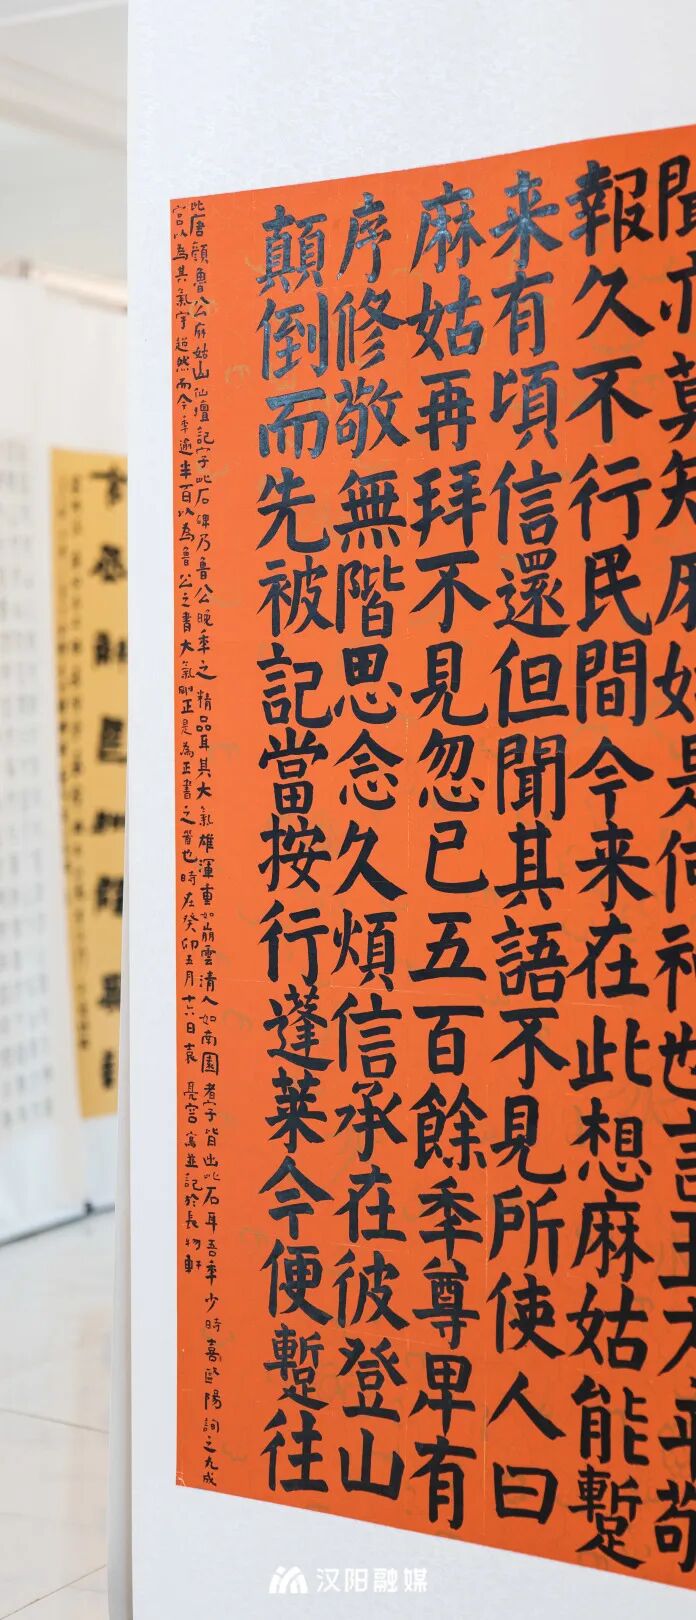 聞亦莫知麻姑是何神也言王方平敬
報久不行民間今来在此想麻姑能蹔
来有頃信還但聞其語不見所使人曰
麻姑再拜不見忽已五百餘季尊卑有
序修敬無階思念久煩信承在彼登山
顛倒而先被記當按行蓬莱今便蹔往
此唐顔魯公麻姑山仙壇記字此石碑乃魯公晚季之精品耳其大氣雄渾重如崩雲清人如南園者字皆出此石耳吾季少時喜歐陽詢之九成
宫以為其氣宇超然而今季逾半百以為魯公之書大氣剛正是為正書之首也時在癸卯五月十六日袁亮寫並記於長物軒
汉阳融媒